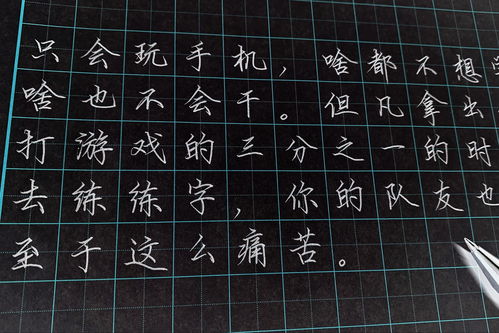 只会玩手机，啥都不想
啥也不会干。但凡拿出
打游戏的三分之一的时
去练练字，你的队友也
至于这么痛苦。